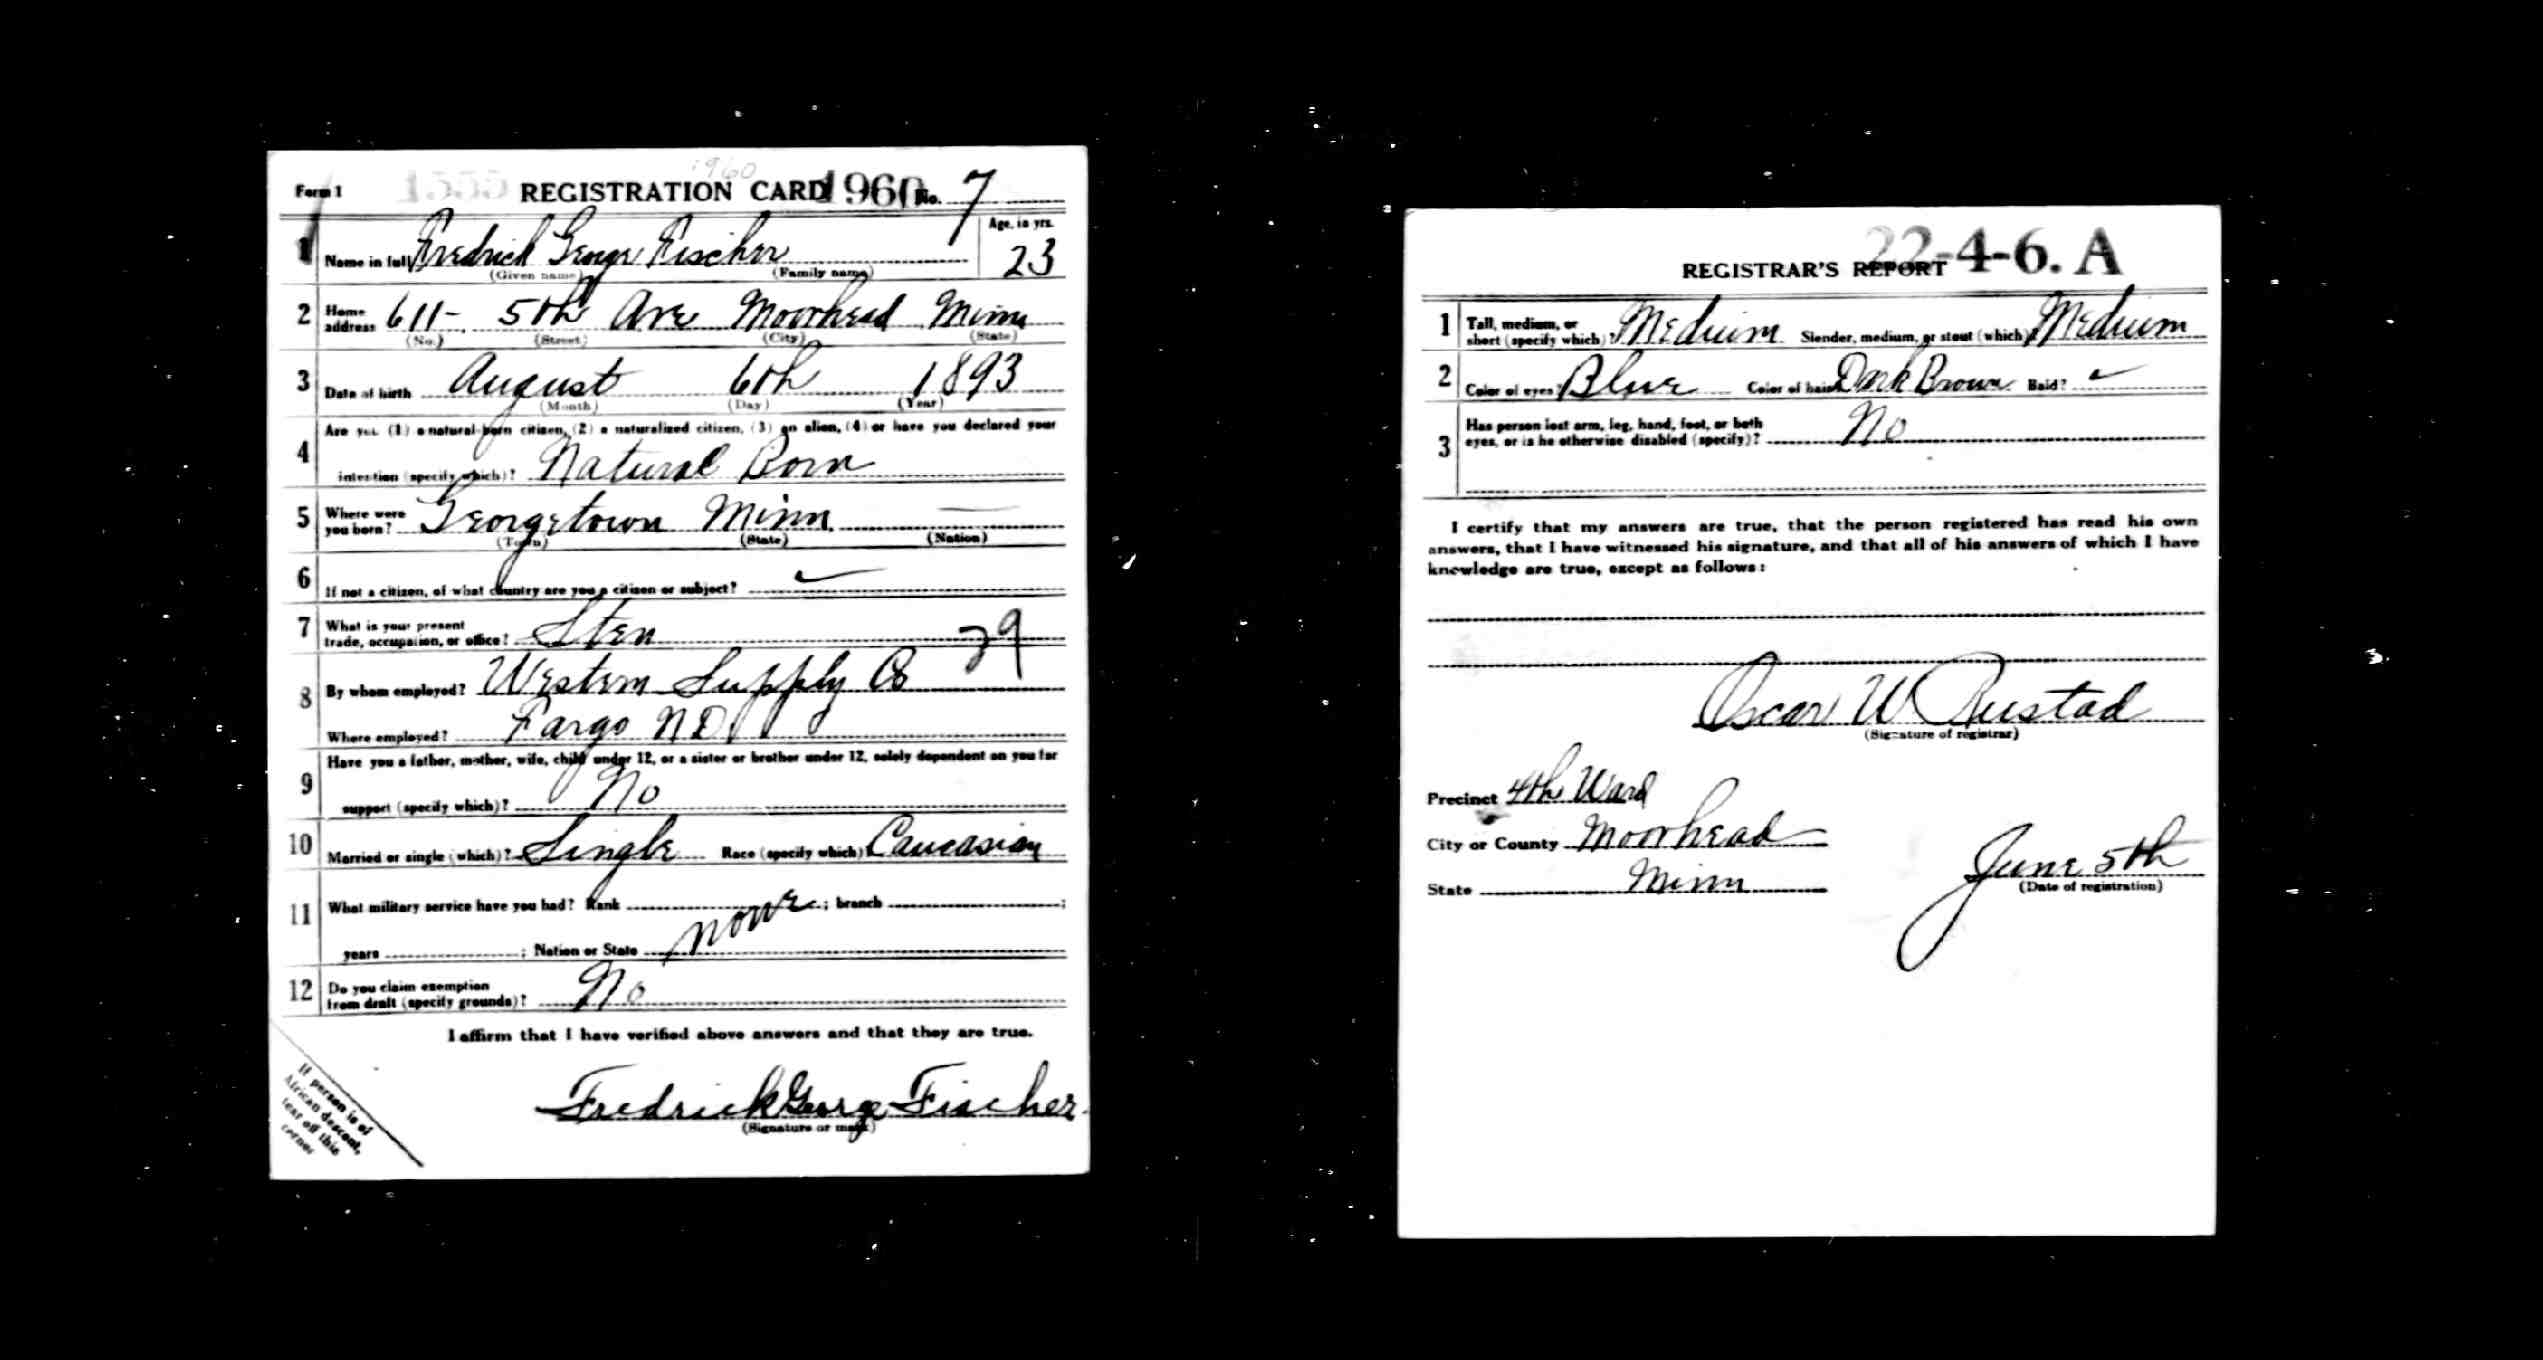 1960
Form 1 1555 REGISTRATION CARD 1960 No. 7
1 Name in full Fredrick George Fischer Age, in yrs. 23
(Given name) (Family name)
2 Home address 611- 5th Ave Moorhead Minn
(No.) (Street) (City) (State)
3 Date of birth August 6th 1893
(Month) (Day) (Year)
4 Are you (1) a natural-born citizen, (2) a naturalized citizen, (3) an alien, (4) or have you declared your
intention (specify which)? Natural Born
5 Where were you born? Georgetown Minn —
(Town) (State) (Nation)
6 If not a citizen, of what country are you a citizen or subject? ✓
7 What is your present trade, occupation, or office? Sten 29
8 By whom employed? Western Supply Co
Where employed? Fargo ND
9 Have you a father, mother, wife, child under 12, or a sister or brother under 12, solely dependent on you for
support (specify which)? No
10 Married or single (which)? Single Race (specify which)? Caucasian
11 What military service have you had? Rank ; branch ;
years ; Nation or State None
12 Do you claim exemption from draft (specify grounds)? No
I affirm that I have verified above answers and that they are true.
Fredrick George Fischer
(Signature or mark)
If person is of
African descent,
tear off this
corner
22-4-6. A
REGISTRAR'S REPORT
1 Tall, medium, or short (specify which)? Medium Slender, medium, or stout (which)? Medium
2 Color of eyes? Blue Color of hair? Dark Brown Bald? ✓
3 Has person lost arm, leg, hand, foot, or both
eyes, or is he otherwise disabled (specify)? No
I certify that my answers are true, that the person registered has read his own
answers, that I have witnessed his signature, and that all of his answers of which I have
knowledge are true, except as follows:
Oscar W Rustad
(Signature of registrar)
Precinct 4th Ward
City or County Moorhead
State Minn
June 5th
(Date of registration)